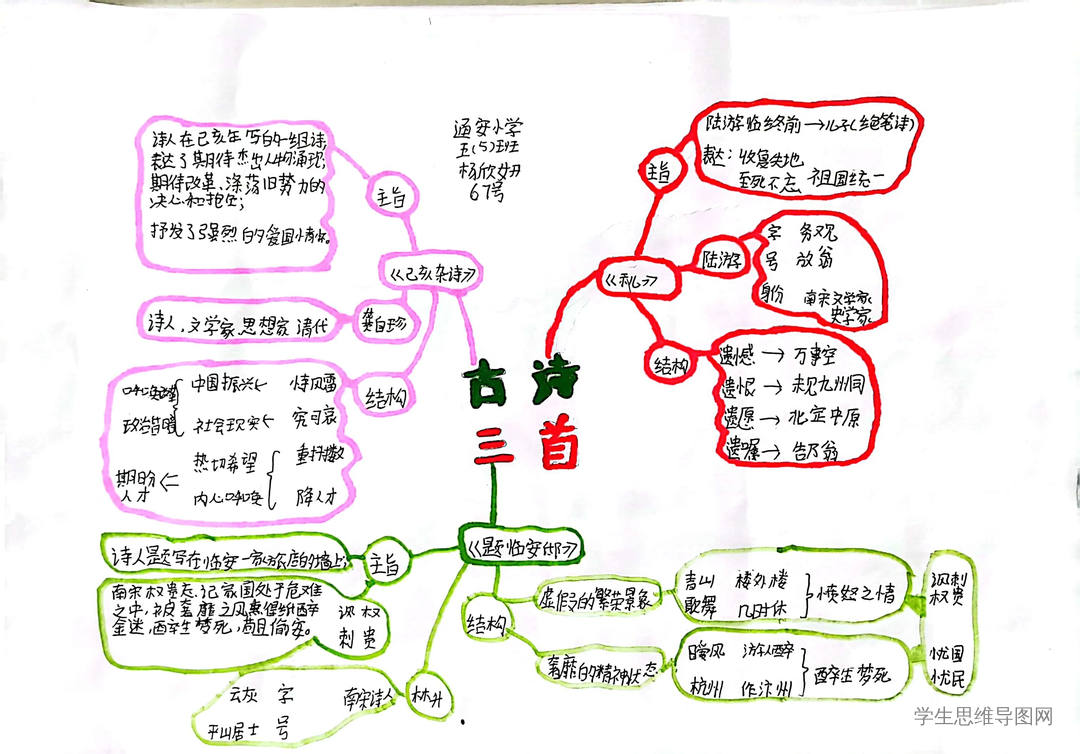 通安小学
五(5)班
杨欣妞
67号
古诗
三首
《己亥杂诗》
主旨
诗人在己亥年写的一组诗,
表达了期待杰出人物涌现,
期待改革、涤荡旧势力的
决心和抱负;
抒发了强烈的爱国情怀。
龚自珍
诗人,文学家,思想家 清代
结构
中国振兴 恃风雷
政治昏暗 社会现实 究可哀
期盼 热切希望 重抖擞
人才 内心呼唤 降人才
《示儿》
主旨
陆游临终前→儿子(绝笔诗)
表达:收复失地
至死不忘 祖国统一
陆游
字 务观
号 放翁
身份 南宋文学家
史学家
结构
遗憾→万事空
遗恨→未见九州同
遗愿→北定中原
遗嘱→告乃翁
《题临安邸》
主旨
诗人是题写在临安一家旅店的墙上;
南宋权贵忘记家国处于危难
之中,被奢靡之风熏得纸醉
金迷,醉生梦死,苟且偷安。
讽权
刺贵
林升
云友 字 南宋诗人
平山居士 号
结构
虚假的繁荣景象
青山 楼外楼
歌舞 几时休
愤怒之情
奢靡的精神状态
暖风 游人醉
杭州 作汴州
醉生梦死
讽刺
权贵
忧国
忧民
学生思维导图网